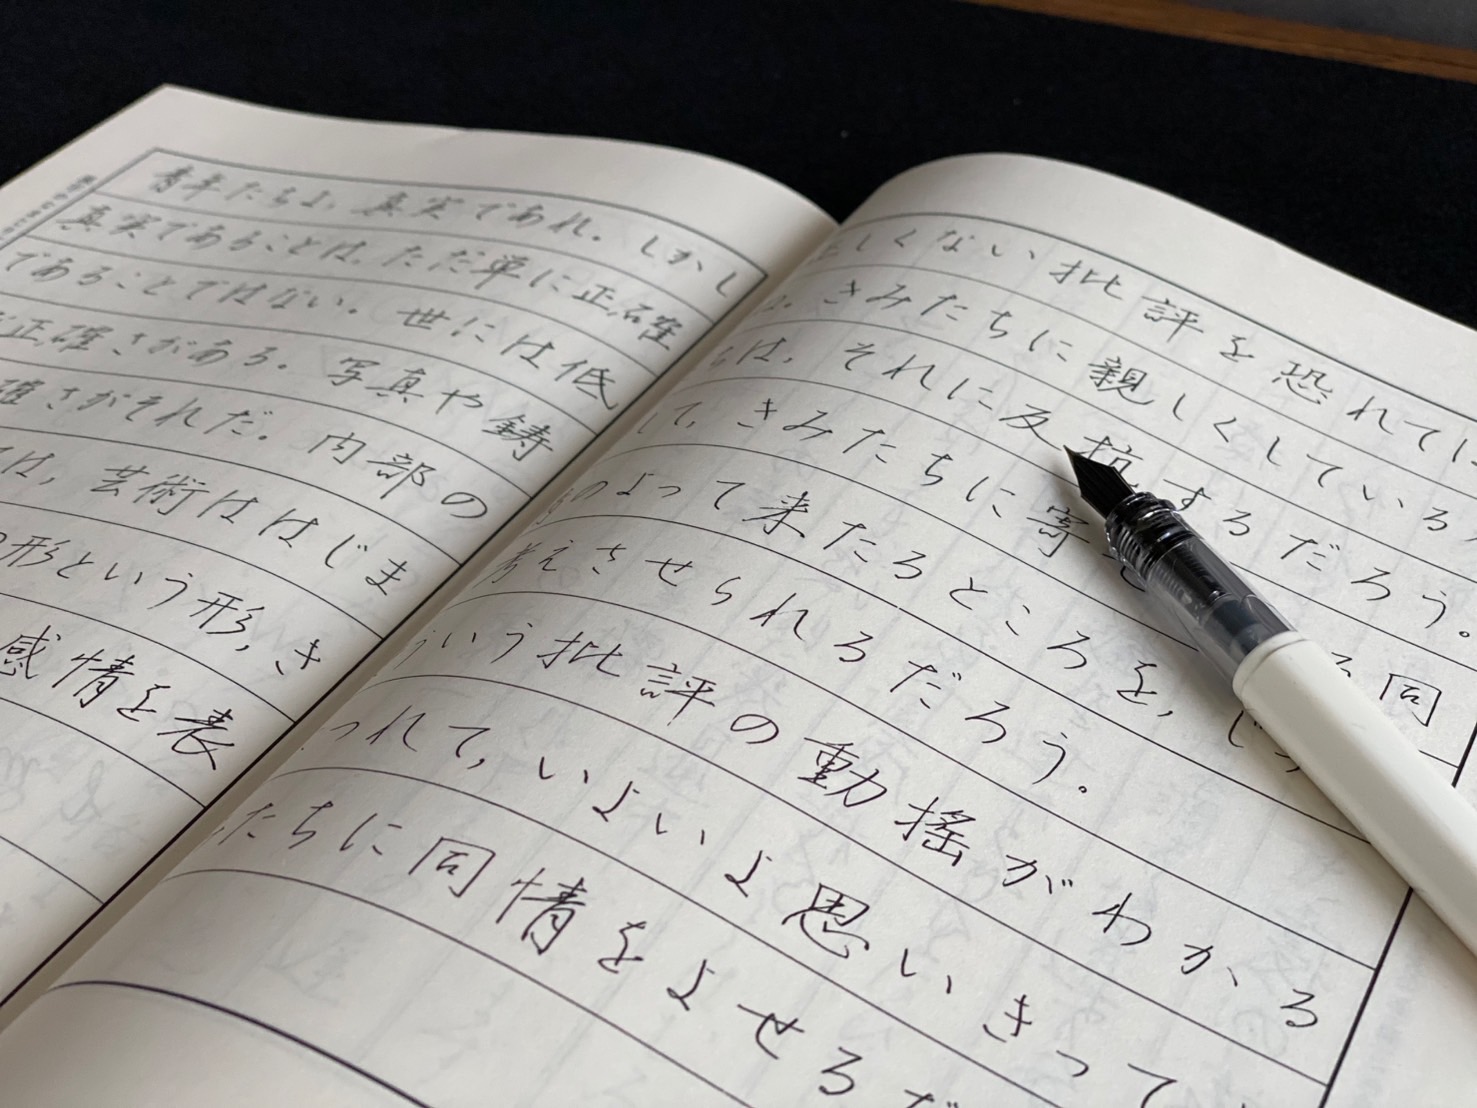 青年たちよ、真実であれ。しかし
真実であることは、ただ単に正確
であることではない。世には低
正確さがある。写真や鋳
確さがそれだ。内部の
は、芸術ははじま
形という形、さ
感情を表
しくない批評を恐れては
きみたちに親しくしている
は、それに反抗するだろう。
て、きみたちに寄 る同
のよって来たるところを、じっ
考えさせられるだろう。
いう批評の動揺がわかる
つれて、いよいよ思いきって
たちに同情をよせるだ